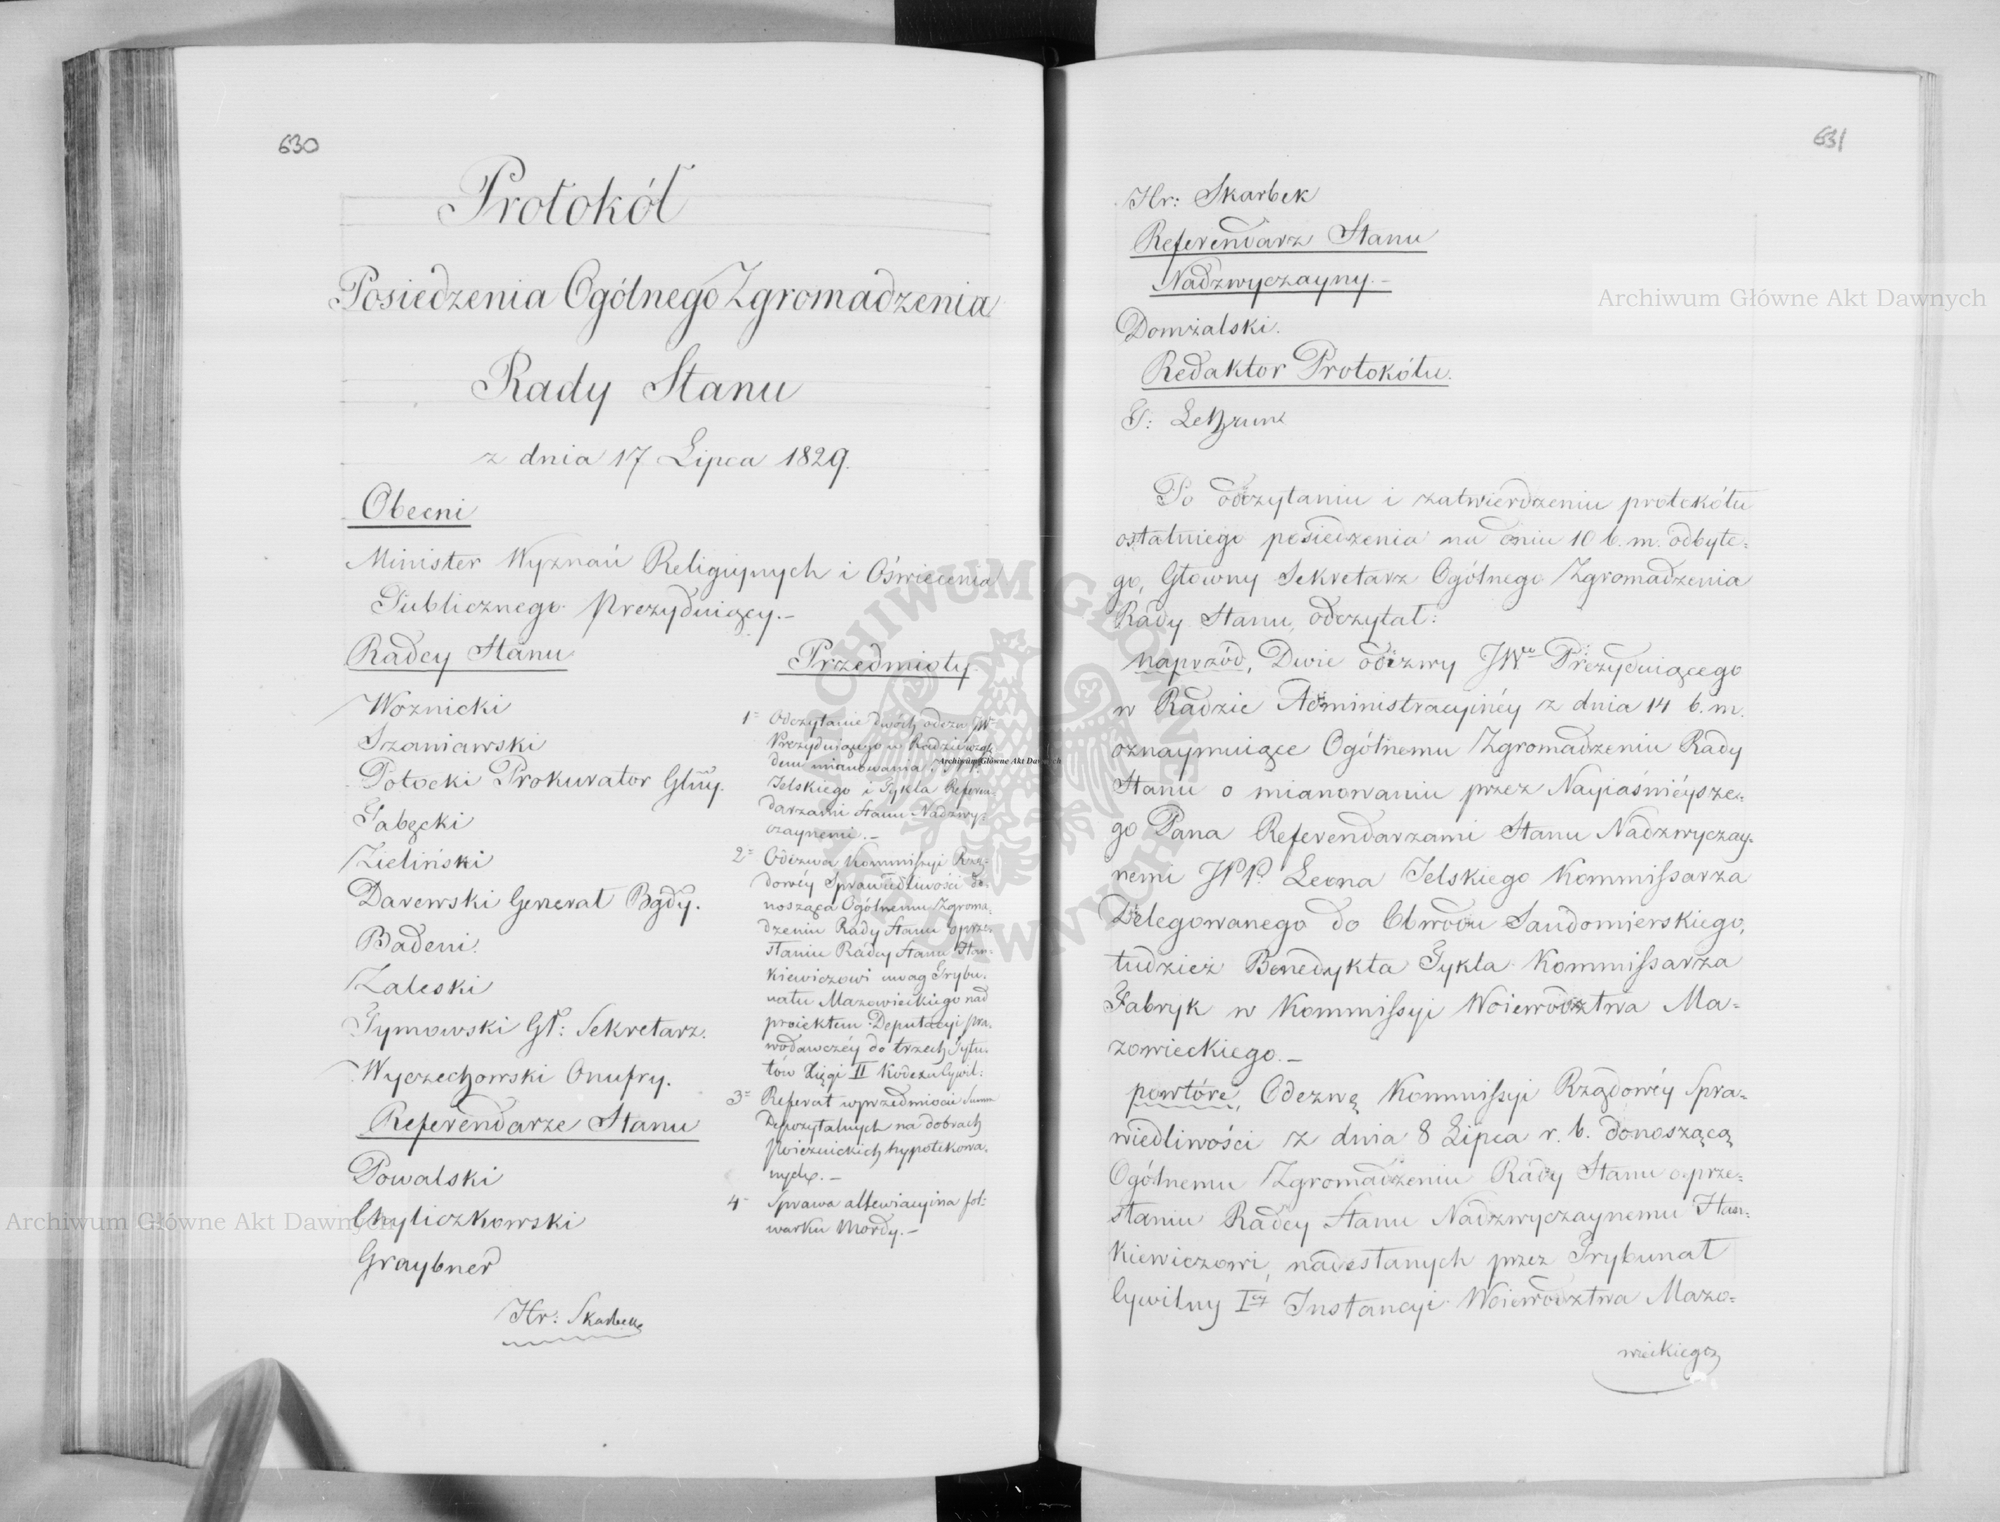 630
Protokół
Posiedzenia Ogólnego Zgromadzenia
Rady Stanu
z dnia 17 Lipca 1829.
Obecni
Minister Wyznań Religiynych i Oświecenia
Publicznego Prezyduiący.-
Radcy Stanu
Woznicki
Szaniawski
Potocki Prokurator Głny.
Łabęcki
Zieliński
Darewski Generał Bgdy.
Badeni.
Zaleski
Tymowski Gł: Sekretarz.
Wyczechowski Onufry.
Referendarze Stanu
Powalski
Chyliczkowski
Graybner
Hr: Skarbek
Przedmioty.
1= Odczytanie dwóch odezw JW
Prezyduiącego w Radzie wzglę
dem mianowania
Jelskiego i Tykla Referen-
darzami Stanu Nadzwy-
czaynemi.-
2= Odezwa Kommissyi Rzą-
dowéy Sprawiedliwości do-
nosząca Ogólnemu Zgroma-
dzeniu Rady Stanu o prze-
słaniu Radcy Stanu Haw-
kiewiczowi uwag Trybu-
nału Mazowieckiego nad
proiektem Deputacyi pra-
wodawczéy do trzech Tytu-
łów Xięgi II Kodexu Cywil:
3= Referat w przedmiocie Summ
Depozytalnych na dobrach
hypotekowa-
nych.-
4- Sprawa allewiacyina fol-
warku Mordy.-
631
Hr: Skarbek
Referendarz Stanu
Nadzwyczayny.-
Domżalski.
Redaktor Protokółu.
Po odczytaniu i zatwierdzeniu protokółu
ostatniego posiedzenia na dniu 10 b. m. odbyte-
go, Głowny Sekretarz Ogólnego Zgromadzenia
Rady Stanu, odczytał:
naprzód, Dwie odezwy JWgo Prezyduiącego
w Radzie Administracyinéy z dnia 14 b. m.
oznaymuiące Ogólnemu Zgromadzeniu Rady
Stanu o mianowaniu przez Nayiaśniéysze-
go Pana Referendarzami Stanu Nadzwyczay-
nemi JPP. Leona Jelskiego Kommissarza
Delegowanego do Obwodu Sandomierskiego,
tudzież Benedykta Tykla Kommissarza
Fabryk w Kommissyi Woiewództwa Ma-
zowieckiego.-
powtóre, Odezwę Kommissyi Rządowéy Spra-
wiedliwości z dnia 8 Lipca r. b. donoszącą
Ogólnemu Zgromadzeniu Rady Stanu o prze-
słaniu Radcy Stanu Nadzwyczaynemu Haw-
kiewiczowi, nadesłanych przez Trybunał
Cywilny Iey Instancyi Woiewództwa Mazo-
wieckiego
Archiwum Główne Akt Dawnych
Archiwum Główne Akt Dawnych
Archiwum Główne Akt Dawnych
ARCHIWUM GŁÓWNE AKT DAWNYCH